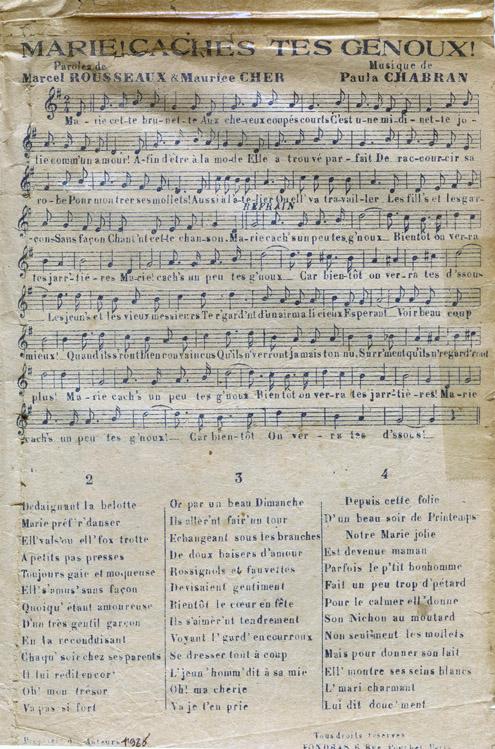 MARIE! CACHES TES GENOUX!
Paroles de
Marcel ROUSSEAUX & Maurice CHER
Musique de
Paula CHABRAN
Ma - rie cet-te bru-net-te Aux che-veux coupés courts C'est u-ne mi-di-net-te jo-
lie comm'un amour! A-fin d'être à la mo-de Elle a trouvé par-fait De rac-cour-cir sa
ro-be Pour montrer ses mollets! Aussi à l'a-te-lier Ou ell' va tra-vail-ler Les fill's et les gar-
REFRAIN
-cons Sans façon Chant'nt cet-te chan-son. Ma-rie cach's un peu tes g'noux... Bientôt on ver-ra
tes jarr'-tiè-res Ma-rie! cach's un peu tes g'noux... Car bien-tôt on ver-ra tes d'ssous
Les jeun's et les vieux messieurs Te r'gard'nt d'un air malicieux Esperant Voir beau coup
mieux! Quand ils s'ront bien convaincus Qu'ils n'verront jamais ton nu, Sur'ment qu'ils n'regard'ront
plus! Ma-rie cach's un peu tes g'noux Bientôt on ver-ra tes jarr'-tiè-res! Ma-rie
cach's un peu tes g'noux!... Car bien-tôt On ver-ra tes d'ssous!...
2
Dedaignant la belotte
Marie préf'r' danser
Ell' vals' ou ell' fox trotte
A petits pas presses
Toujours gaie et moqueuse
Ell' s'amus' sans façon
Quoiqu' étant amoureuse
D'un très gentil garçon
En la reconduisant
Chaqu' soir chez ses parents
Il lui redit encor'
Oh! mon trésor
Va pas si fort
3
Or par un beau Dimanche
Ils allèr'nt fair' un tour
Echangeant sous les branches
De doux baisers d'amour
Rossignols et fauvettes
Devisaient gentiment
Bientôt le cœur en fête
Ils s'aimèr'nt tendrement
Voyant l' gard' en courroux
Se dresser tout à coup
L' jeun' homm' dit à sa mie
Oh! ma cherie
Va je t'en prie
4
Depuis cette folie
D'un beau soir de Printemps
Notre Marie jolie
Est devenue maman
Parfois le p'tit bonhomme
Fait un peu trop d'pétard
Pour le calmer ell' donne
Son Nichon au moutard
Non seul'ment les mollets
Mais pour donner son lait
Ell' montre ses seins blancs
L' mari charmant
Lui dit douc'ment
Auteurs 1926
Tous droits réservés